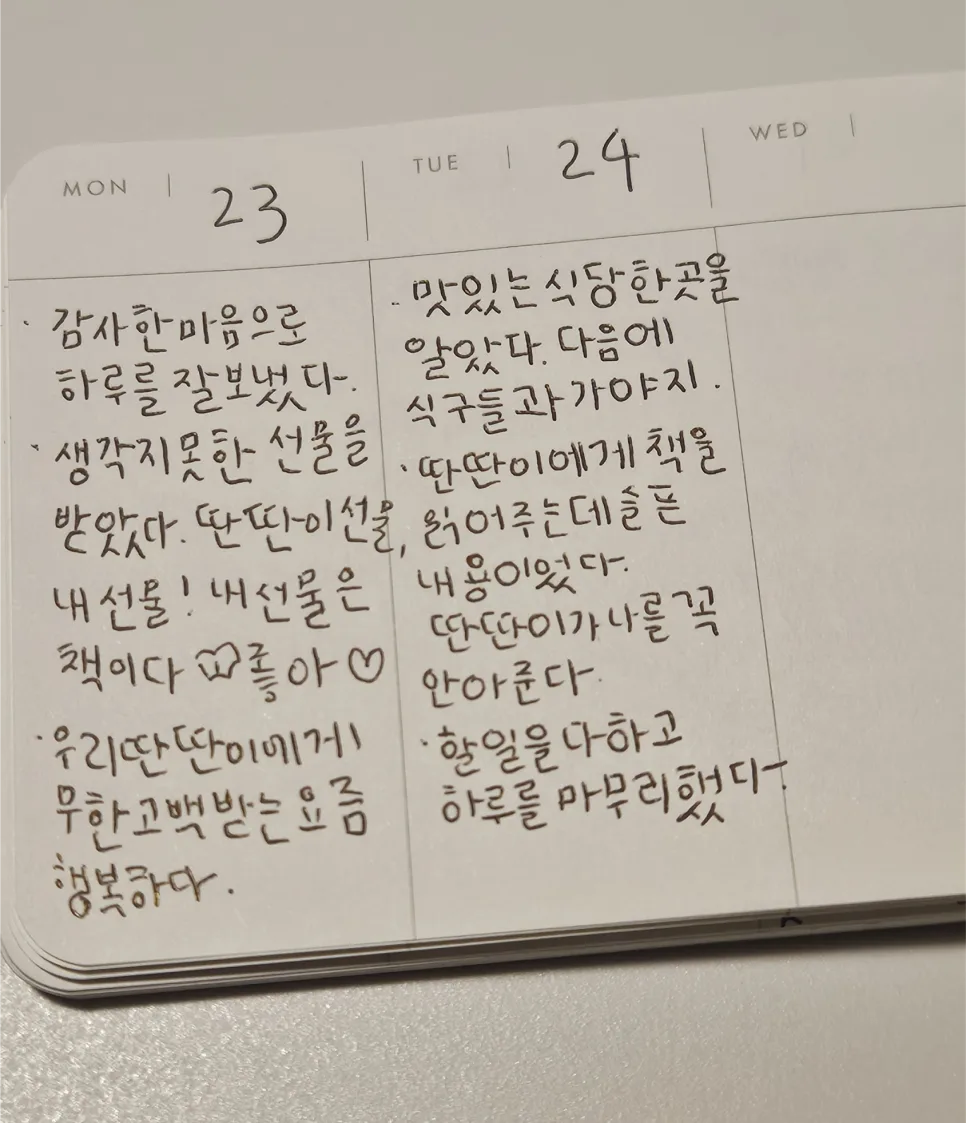 MON 23
감사한 마음으로
하루를 잘 보냈다.
· 생각지 못한 선물을
받았다. 딴딴이 선물,
내 선물! 내 선물은
책이다 좋아 ♡
· 우리 딴딴이에게
무한고백 받는 요즘
행복하다.
TUE 24
· 맛있는 식당 한 곳을
알았다. 다음에
식구들과 가야지.
· 딴딴이에게 책을
읽어주는데 슬픈
내용이었다.
딴딴이가 나를 꼭
안아준다.
· 할일을 다하고
하루를 마무리했다.
WED